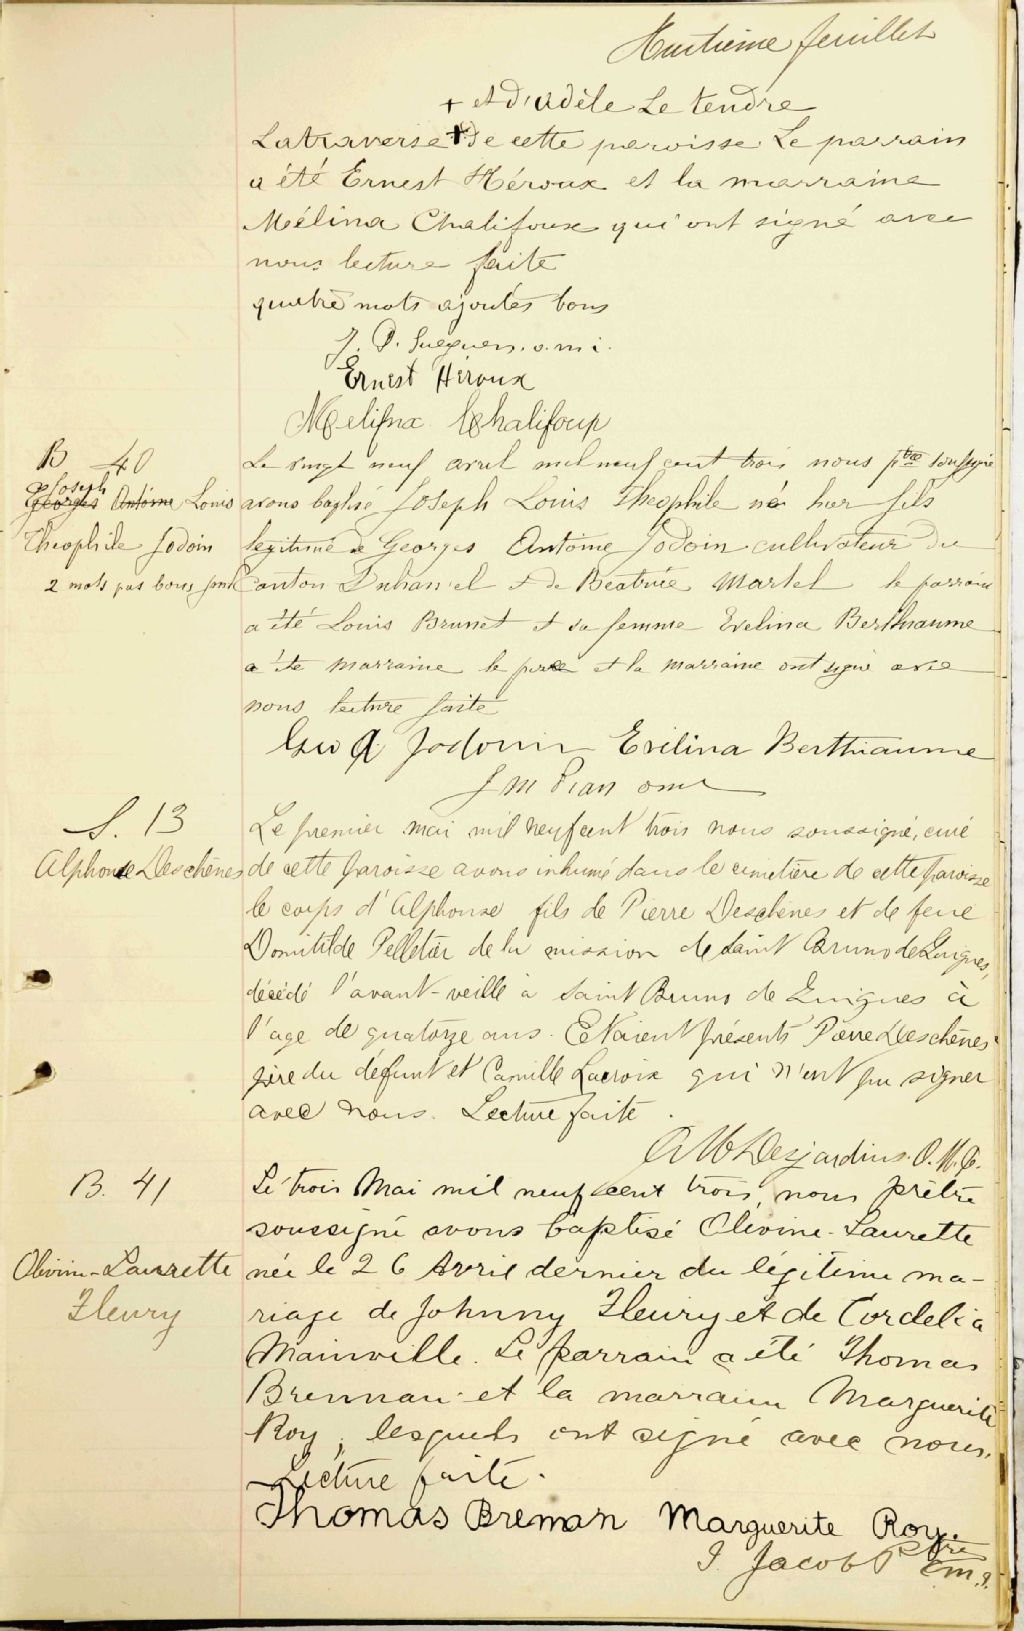 Huitième feuillet
+ et d'Adèle Le tendre
Latraverse + de cette paroisse. Le parrain
a été Ernest Héroux et la marraine
Mélina Chalifoux qui ont signé avec
nous lecture faite
quatre mots ajoutés bons
J. P. Gueguen. o.m.i.
Ernest Héroux
Melina Chalifoux
B 40
Joseph
Georges Antoine Louis
Theophile Jodoin
2 mots pas bons
Le vingt neuf avril mil neuf cent trois nous ptre soussigné
avons baptisé Joseph Louis Theophile né hier fils
legitime de Georges Antoine Jodoin cultivateur du
Canton Duhamel et de Beatrice Martel le parrain
a été Louis Brunet et sa femme Evelina Berthiaume
a été marraine le père et la marraine ont signé avec
nous lecture faite
Geo A Jodouin Evilina Berthiaume
J M Pian omi
S. 13
Alphonse Deschênes
Le premier mai mil neuf cent trois nous soussigné, curé
de cette paroisse avons inhumé dans le cimetière de cette paroisse
le corps d'Alphonse fils de Pierre Deschênes et de feue
Domitilde Pelletier de la mission de Saint Bruno de Guigues,
décédé l'avant-veille à Saint Bruno de Guigues à
l'age de quatorze ans. Etaient présents Pierre Deschênes
père du défunt et Camille Lacroix qui n'ont pu signer
avec nous. Lecture faite.
Desjardins. O.M.I.
B. 41
Olivine-Laurette
Fleury
Le trois Mai mil neuf cent trois, nous prêtre
soussigné avons baptisé Olivine-Laurette
née le 26 Avril dernier du légitime ma-
riage de Johnny Fleury et de Cordelia
Mainville. Le parrain a été Thomas
Brennan et la marraine Marguerite
Roy, lesquels ont signé avec nous.
Lecture faite.
Thomas Brennan Marguerite Roy.
I. Jacob Ptre
o.m.i.